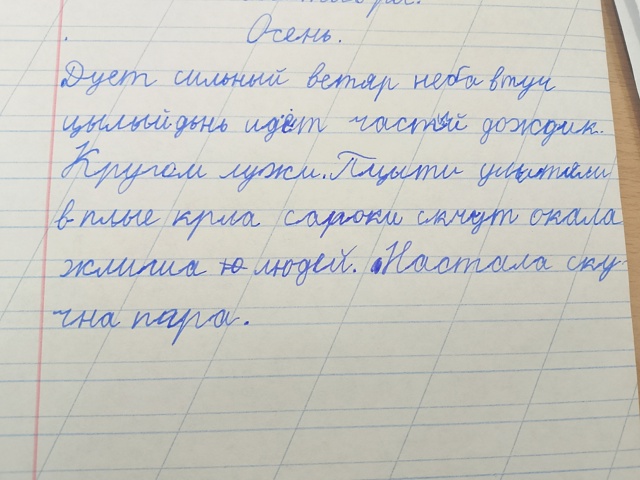 Осень.
Дует сильный ветяр неба втуч
цылый дынь идёт частый дождик.
Кругом лужи. Пцыти улытели
в плые крла сароки скчут окала
жлигиа ю людей. Настала ску-
чна пара.